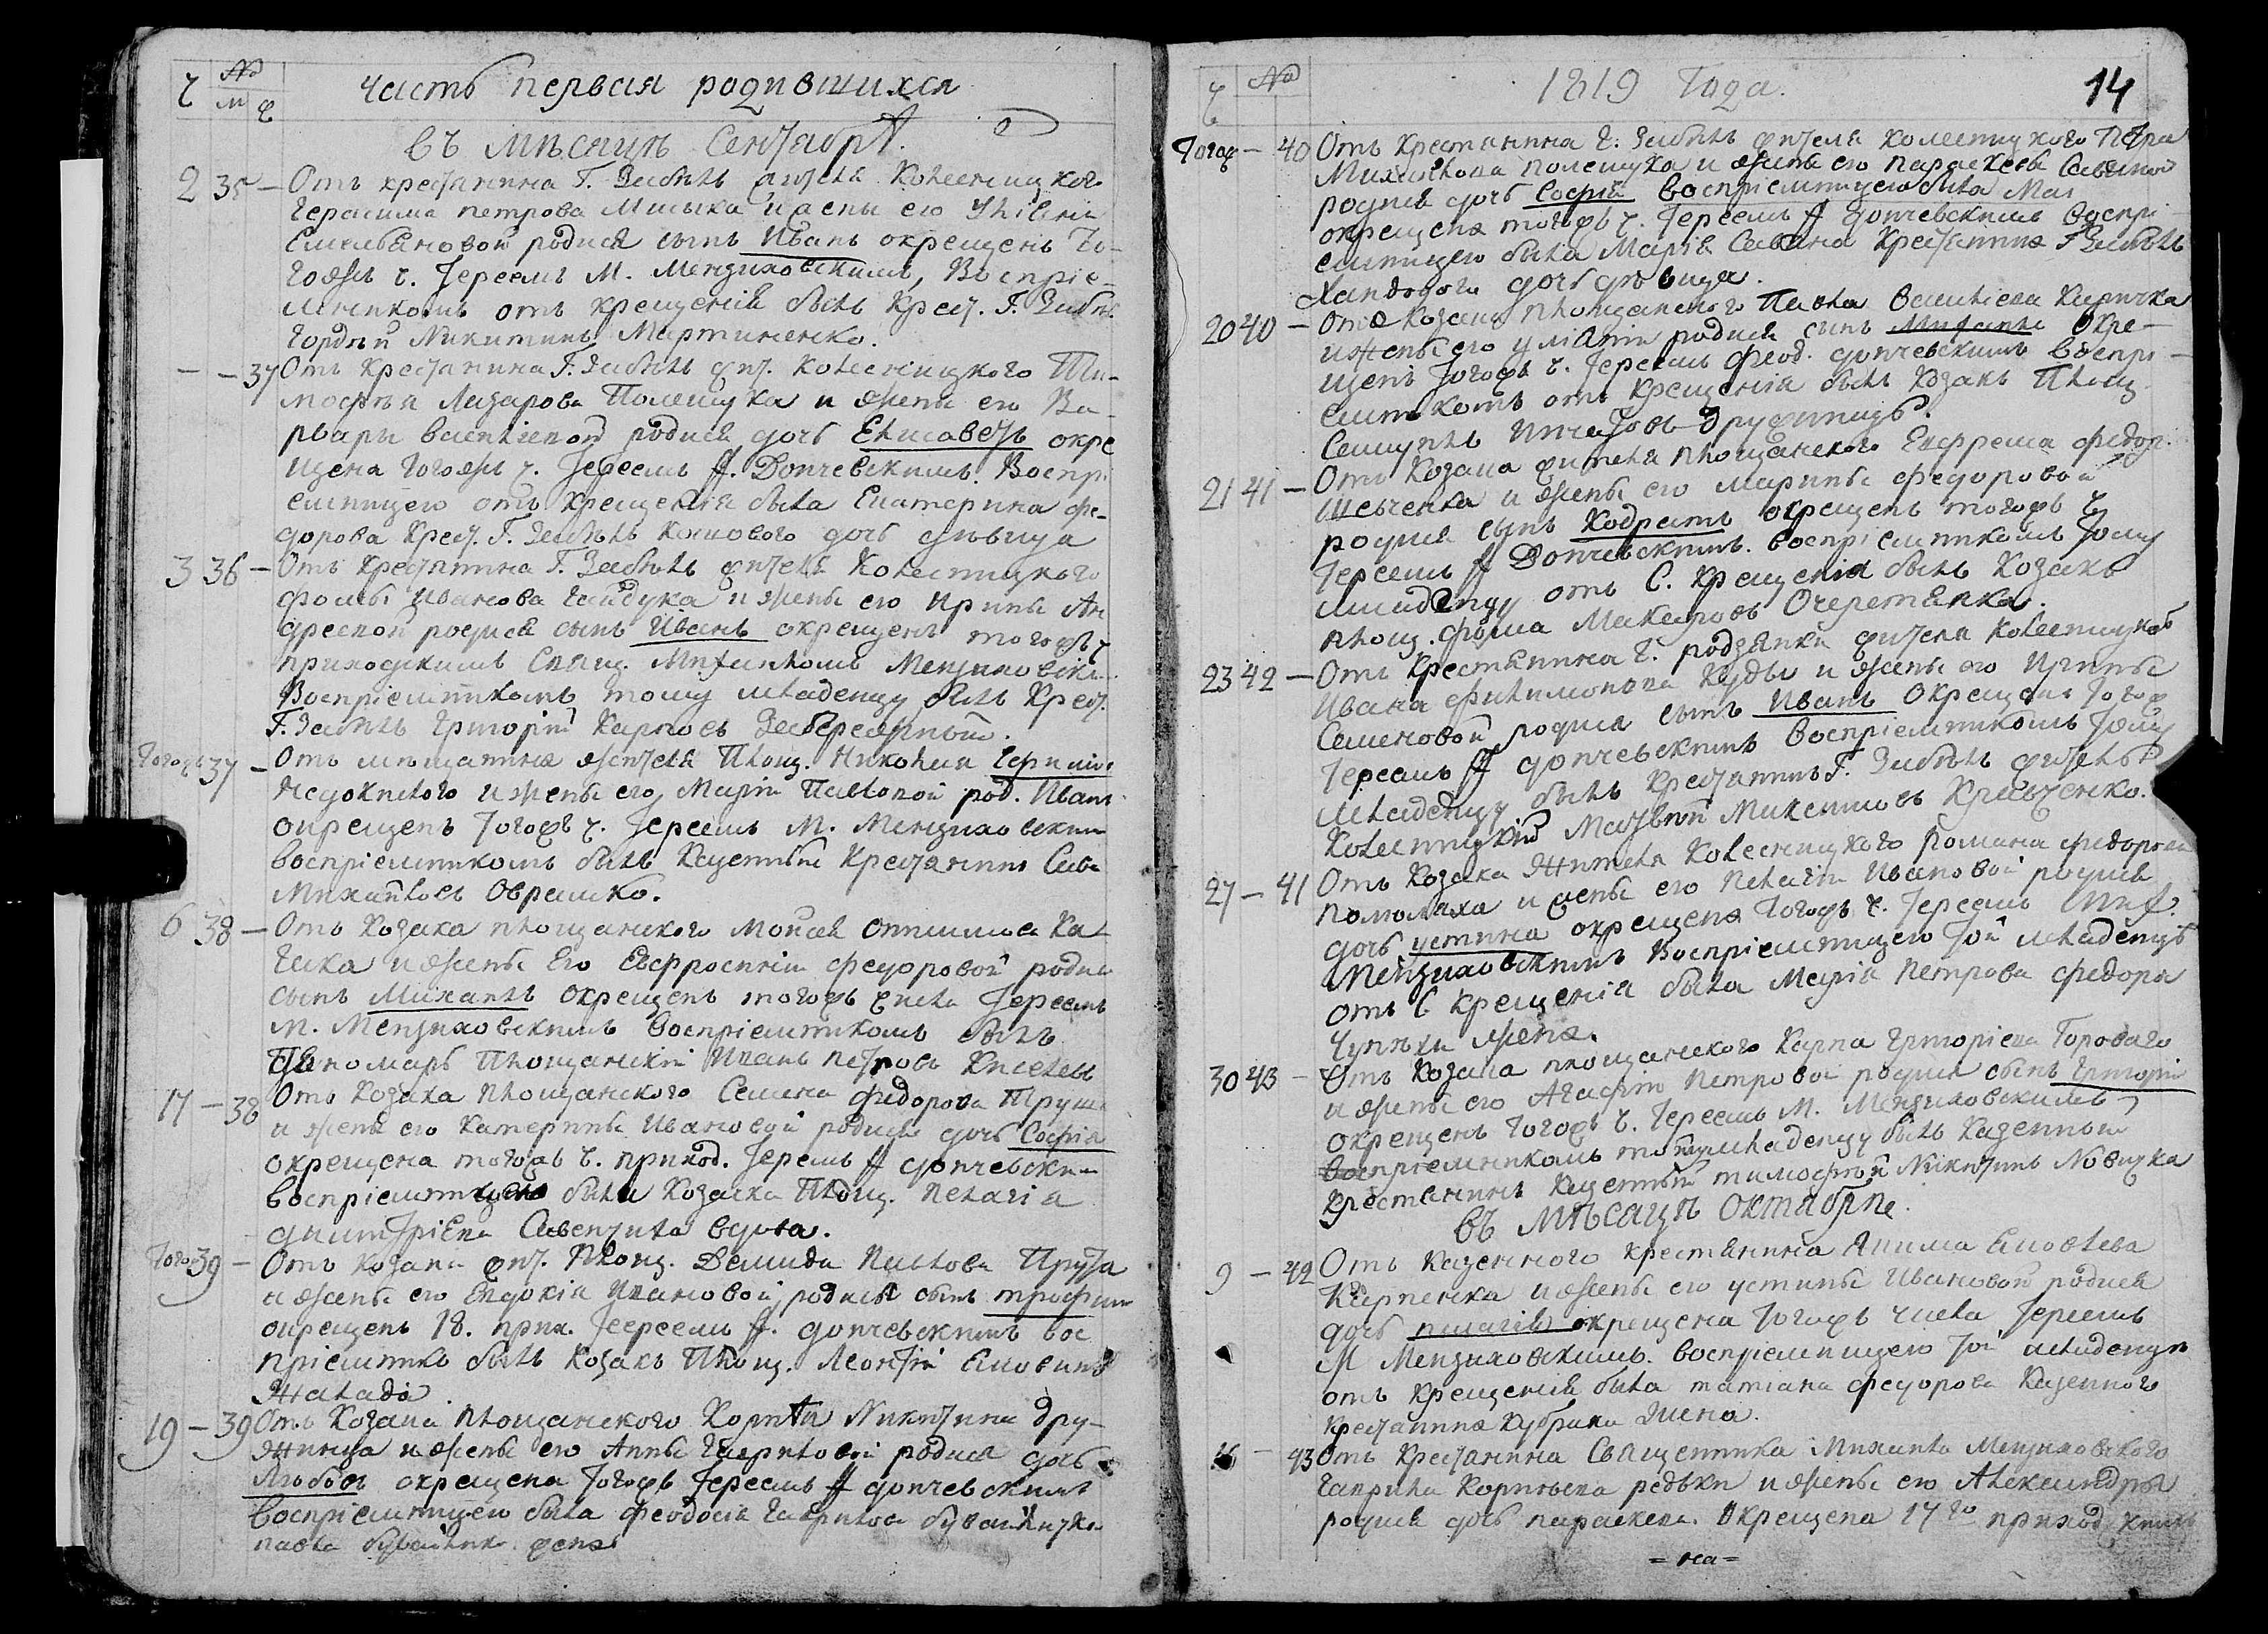 ч № м ж
часть первая родившихся
въ мѣсяцѣ Сентябрѣ.
2 35 — Отъ крестянина Г. Забѣлъ жителя Колесницкого
Герасима петрова Мисика и жены его
Емельяновой родися сынъ Иванъ окрещенъ то-
гожъ ч. Іереемъ М. Мензиховскимъ, Воспріе-
мникомъ отъ крещенія былъ Крест. Г. Забѣл.
Гордѣй Никитинъ Мартиненко.
— — 37 Отъ Крестянина Г. Забѣлъ жит. Колесницкого Ти-
мофѣя Лазарова Полещука и жены его Ва-
рвары васильевой родися дочь Елисаветъ окре
щена тогожъ ч. Іереемъ Ѳ. Допчевскимъ. Воспрі
емницею отъ Крещенія была Екатерина Фе-
дорова Крест. Г. Забѣлъ дочь дѣвица
3 36 — Отъ Крестянина Г. Забѣлъ жителя Колесницкого
Фомы Иванова Гайдука и жены его Ирины Ан
дреевой родися сынъ Иванъ окрещенъ тогожъ ч
приходскимъ Свящ. Михаиломъ Мензиховски.
Воспріемникомъ тому младенцу былъ Крест.
Г. Забѣлъ Григорій Карповъ Забережный.
Тогожъ 37 — Отъ мѣщанина жителя Площ. Николая
и жены его Маріи Павловой род. Иванъ
окрещенъ тогожъ ч. Іереемъ М. Мензиховским
воспріемникомъ былъ Казенный Крестянинъ Сава
Михайловъ Оврашко.
6 38 — Отъ Козака площанского Моисея Ка
и жены Его Евфросиніи федоровой родис
сынъ Михаилъ окрещенъ тогожъ числа Іереемъ
М. Мензиховскимъ воспріемникомъ былъ
Паномарь Площанскій Иванъ петровъ Киселевъ
17 — 38 Отъ Козака площанского Семена федорова Труш
и жены его Катерины Ивановой родися дочь Софія
окрещена тогожъ ч. приход. Іереемъ Ѳ допчевским
воспріемницею была Козачка Площ. Пелагіа
дмитріева вдова.
Того 39 — Отъ козака жит. Площ. Демида Павлова
и жены его Евдокіи Ивановой родися сынъ трофим
окрещенъ 18. прих. Іереемъ Ѳ. допчевскимъ вос
пріемникъ былъ Козакъ Площ. Леонтій
Жалада.
19 — 39 Отъ Козака площанского Корнѣя Никитина Дру-
жинца и жены его Анны Гавриловой родися дочь
Любовъ окрещена тогожъ Іереемъ Ѳ допчевскимъ
воспріемницею была Феодосія Гаврилова
павла жена
ч № 1819 Года. 14
Тогож — 40 Отъ Крестянина Г. Забѣлъ жителя Колесницкого Петра
Михайлова полещука и жены его параскевы Савиной
родися дочь Софія воспріемницею была Мар
окрещена тогожъ ч. Іереемъ Ѳ допчевскимъ воспрі
емницею была Марія Савина Крестянина Г Забѣлъ
дочь дѣвица.
20 40 — Отъ козака площанского Павла Василіева Киричка
и жены его родися сынъ Михаилъ окре—
щенъ тогожъ ч. Іереемъ Феод. допчевскимъ воспрі—
емникомъ отъ крещенія былъ Козакъ Площ.
21 41 — Отъ Козака жителя площанского Ефрема федор.
Шевченка и жены его Марины Федоровой
родися сынъ Кодратъ окрещенъ тогожъ ч
Іереемъ Ѳ Допчевскимъ. воспріемникомъ тому
младенцу отъ С. Крещенія былъ Козакъ
площ. фома Макаровъ Очеретянка.
23 42 — Отъ Крестянина Г. родзянки жителя Колесницког
Ивана филимонова Куды и жены его Ирины
Семеновой родися сынъ Иванъ окрещенъ тогож
Іереемъ Ѳ допчевскимъ воспріемникомъ тому
младенцу былъ Крестянинъ Г. Забѣлъ житель
Колесницкій Матвѣй Максимовъ Кравченко.
27 — 41 Отъ Козака Жителя Колесницкого Романа Федорова
поломаха и жены его Пелагіи Ивановой родися
дочь устина окрещена тогожъ ч. Іереемъ Мих.
Мензиховскимъ воспріемницею той младенцѣ
отъ С крещенія была Марія Петрова федора
жена.
30 43 — Отъ Козака площанского Карпа Григоріева Горового
и жены его Агафіи петровой родися сынъ Григорій
окрещенъ тогожъ ч. Іереемъ М. Мензиховскимъ
воспріемникомъ тому младенцу былъ Казенный
крестянинъ тимофѣй Никитинъ Новицка
въ мѣсяцѣ октябрѣ.
9 — 42 Отъ Казенного крестянина Якима
Карпенка и жены его устины Ивановой родися
дочь пелагія окрещена тогожъ числа Іереемъ
М Мензиховскимъ. воспріемницею той младенцѣ
отъ крещенія была татіана федорова Казенного
крестянина жена.
16 — 43 Отъ Крестянина Священника Михаила Мензиховского
Гаврила Корнѣева редьки и жены его Александры
родися дочь параскева. Окрещена 17го приход
= на =